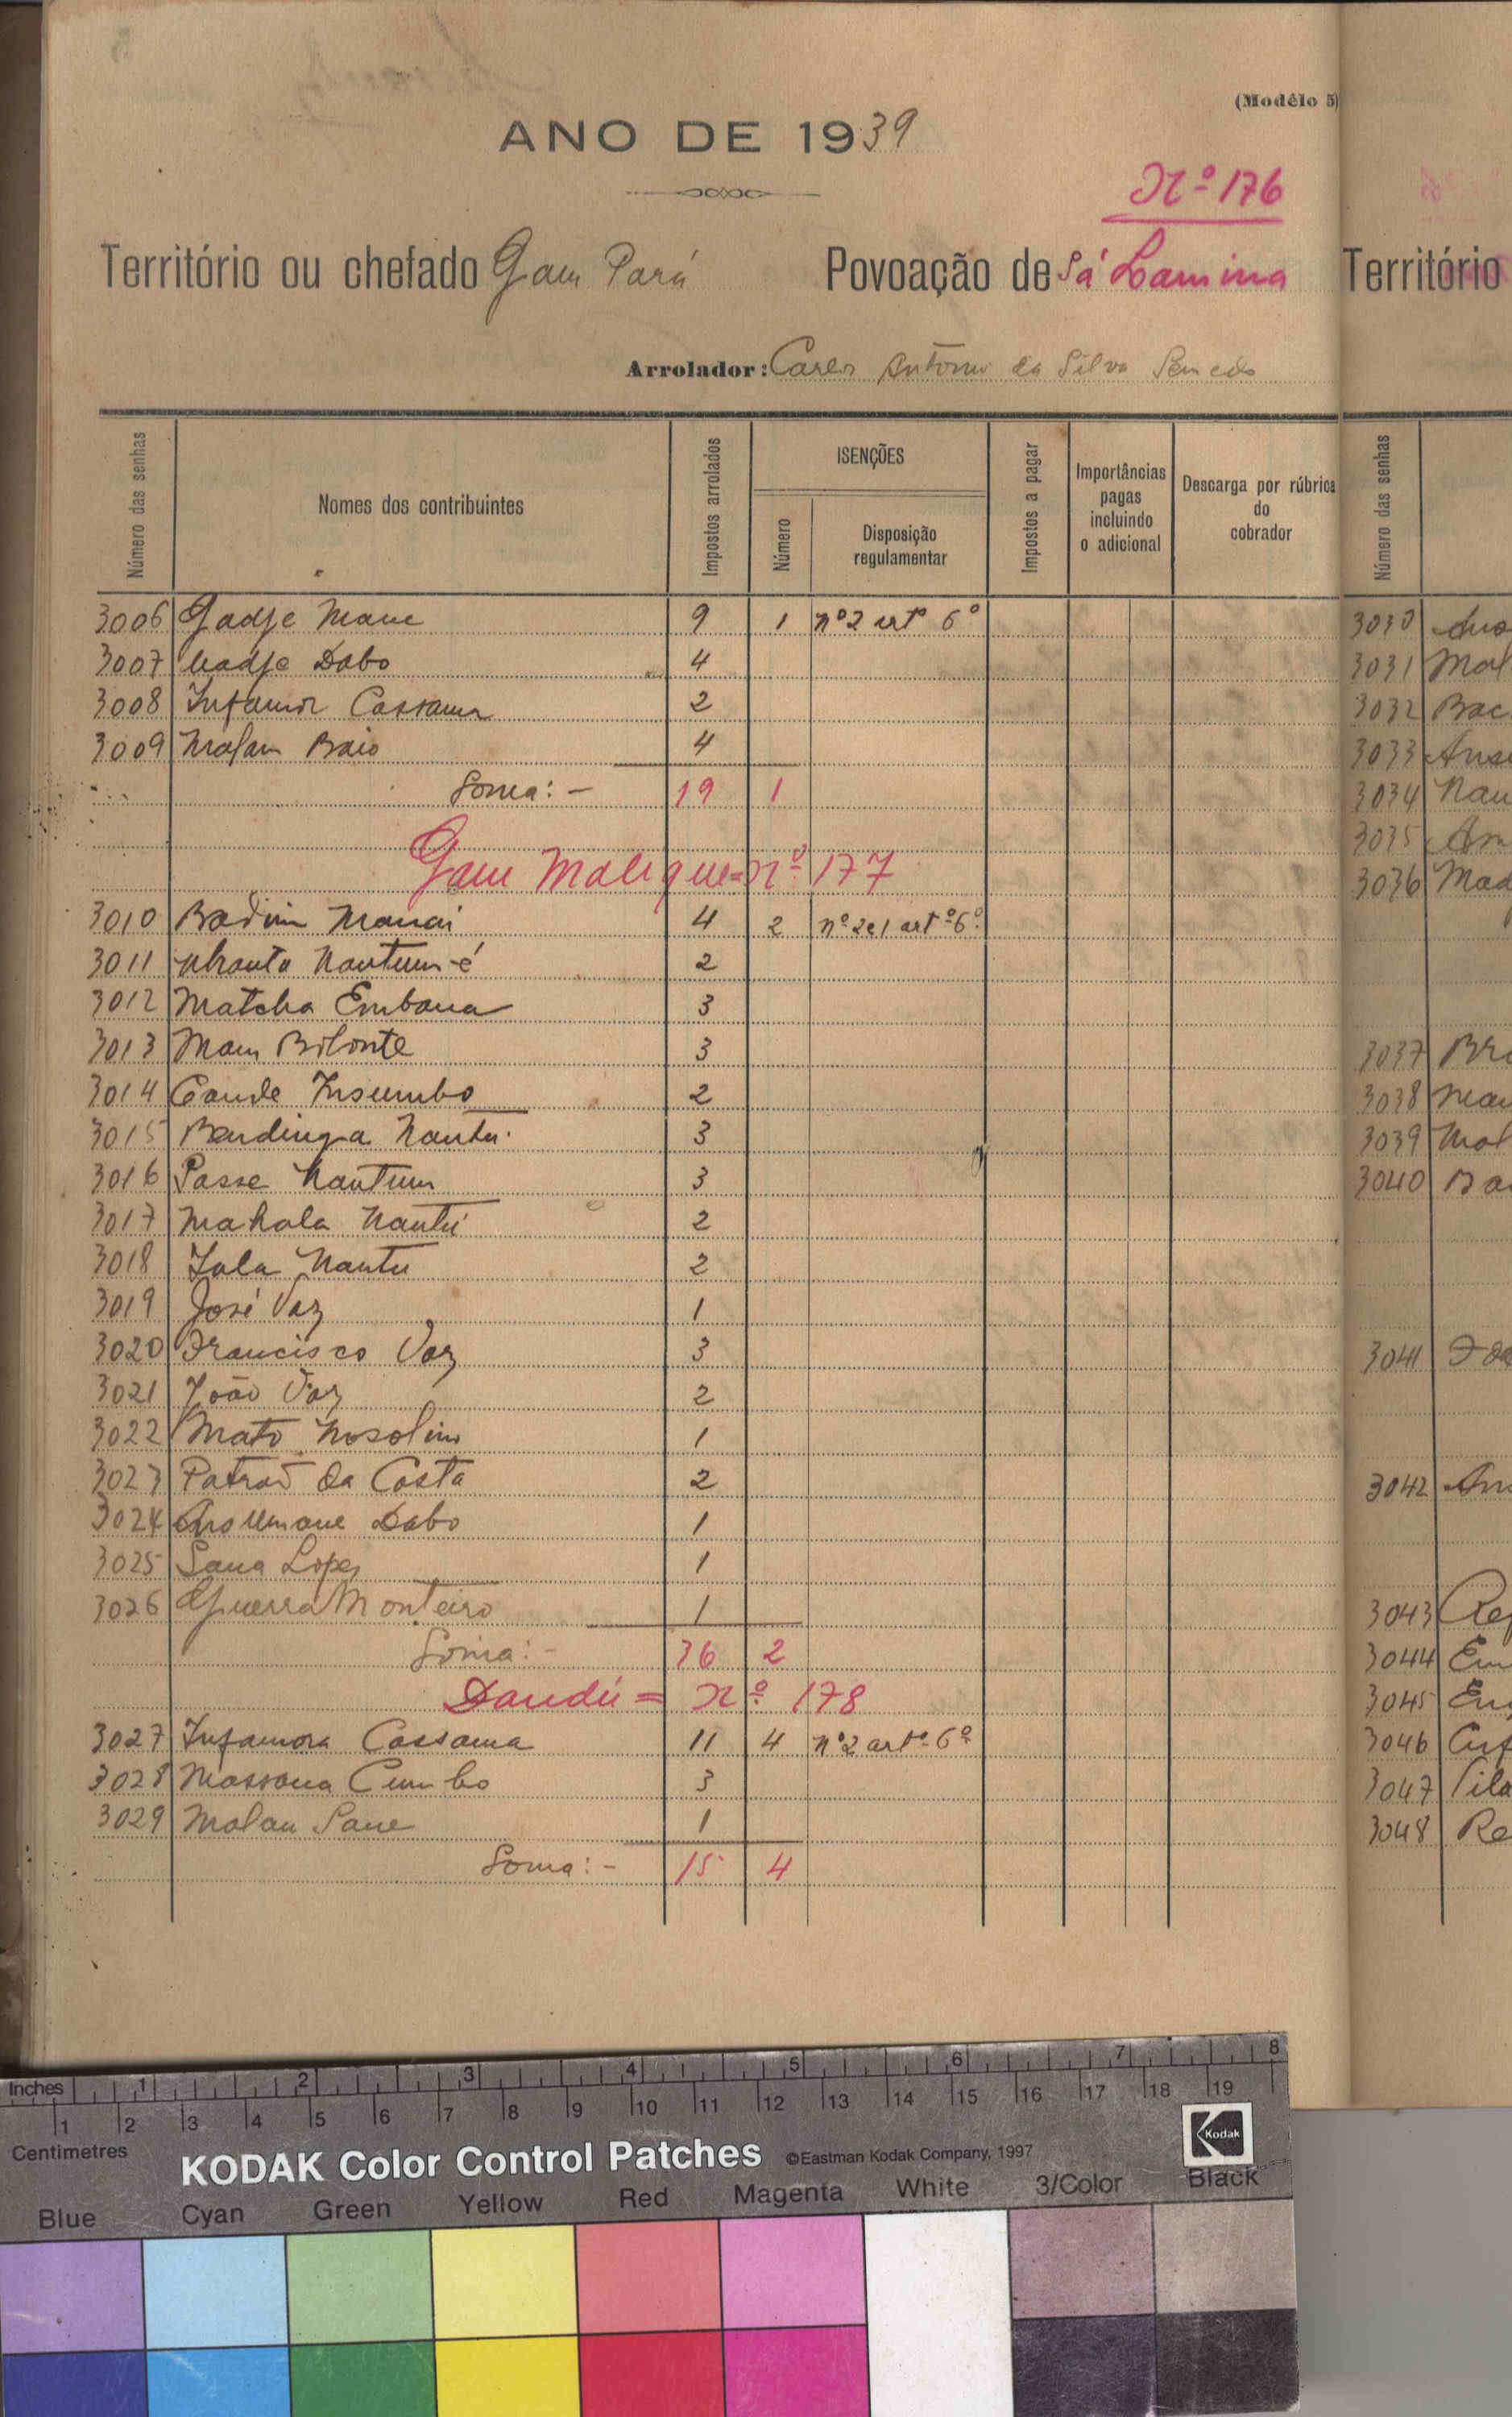 (Modêlo 5)
ANO DE 1939
Nº 176
Território ou chefado Gam Pará Povoação de Sá Lamina
Arrolador: Carlos António da Silva Semedo
Número das senhas
Nomes dos contribuintes
Impostos arrolados
ISENÇÕES
Número
Disposição regulamentar
Impostos a pagar
Importâncias pagas incluindo o adicional
Descarga por rúbrica do cobrador
3006 Gadje Mane 9 1 nº 2 artº 6º
3007 Dabo 4
3008 Infamor Cassama 2
3009 Malam Baio 4
Soma: - 19 1
Gam Malique = nº 177
3010 Badim Manai 4 2 nº 2 e 1 artº 6º
3011 Nantum-é 2
3012 Matcha Embana 3
3013 Mam Bibonte 3
3014 Insumbo 2
3015 Bendinga Nantu 3
3016 Passe Nantum 3
3017 Mahala Nantú 2
3018 Iala Nantu 2
3019 José Vaz 1
3020 Francisco Vaz 3
3021 João Vaz 2
3022 Mato Nosolim 1
3023 Patrão da Costa 2
3024 Dabo 1
3025 Sana Lopes 1
3026 Guerra Monteiro 1
Soma: - 36 2
Dandú = nº 178
3027 Infamora Cassama 11 4 nº 2 artº 6º
3028 Massana Cumbo 3
3029 Malan Sane 1
Soma: - 15 4
Território
Número das senhas
3030
3031 Mal
3032 Bac
3033 Ans
3034 Nan
3035 An
3036 Mad
3037 Bra
3038 Man
3039 Mal
3040 Ba
3041
3042 An
3043
3044 Em
3045
3046
3047
3048 Re
Inches 1 2 3 4 5 6 7 8
1 2 3 4 5 6 7 8 9 10 11 12 13 14 15 16 17 18 19
Centimetres
KODAK Color Control Patches ©Eastman Kodak Company, 1997 Kodak
Blue Cyan Green Yellow Red Magenta White 3/Color Black